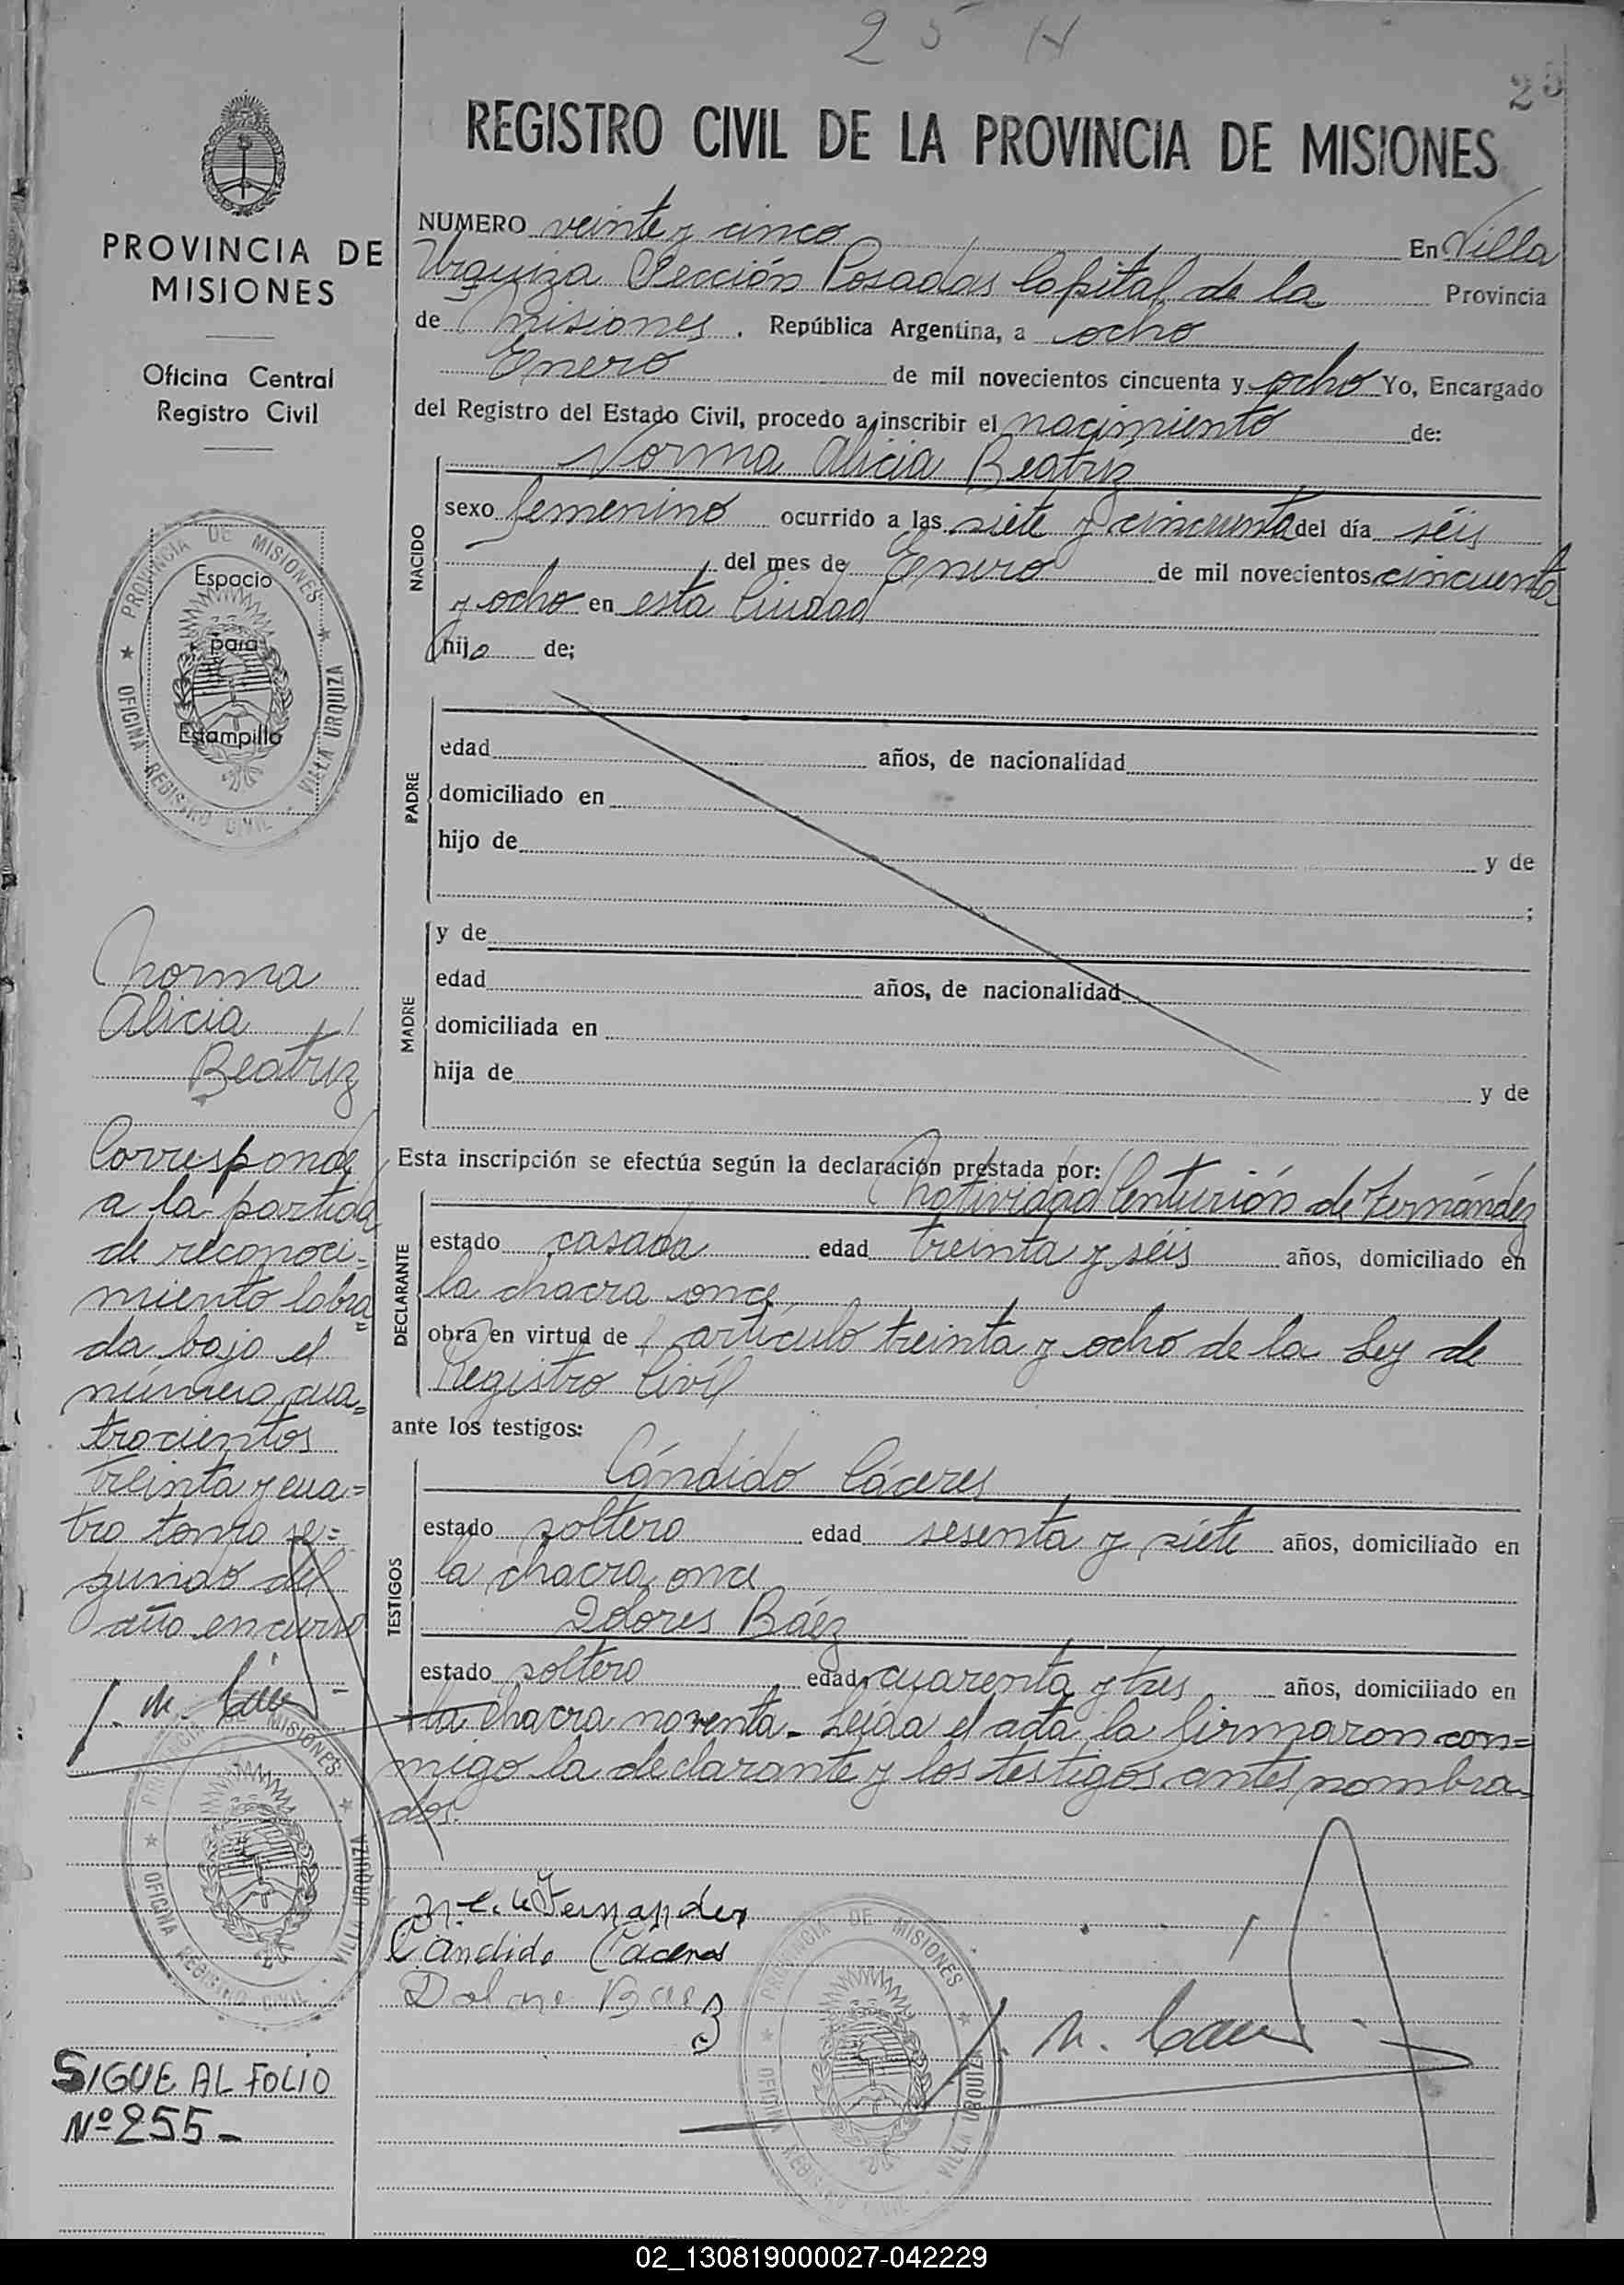 25 H
25
REGISTRO CIVIL DE LA PROVINCIA DE MISIONES
PROVINCIA DE
MISIONES
Oficina Central
Registro Civil
NUMERO veinte y cinco En Villa
Urquiza Sección Posadas Capital de la Provincia
de Misiones. República Argentina, a ocho
Enero de mil novecientos cincuenta y ocho Yo, Encargado
del Registro del Estado Civil, procedo a inscribir el nacimiento de:
NACIDO
Norma Alicia Beatriz
sexo femenino ocurrido a las siete y cincuenta del día séis
del mes de Enero de mil novecientos cincuenta
y ocho en esta Ciudad
hija de;
PROVINCIA DE MISIONES
OFICINA REGISTRO CIVIL - VILLA URQUIZA
Espacio
para
Estampilla
PADRE
edad años, de nacionalidad
domiciliado en
hijo de y de
;
MADRE
y de
edad años, de nacionalidad
domiciliada en
hija de y de
Norma
Alicia
Beatriz
Corresponde
a la partida
de reconoci=
miento labra=
da bajo el
número cua=
trocientos
treinta y cua=
tro tomo se=
gundo del
año en curso
PROVINCIA DE MISIONES
OFICINA REGISTRO CIVIL - VILLA URQUIZA
SIGUE AL FOLIO
Nº 255-
Esta inscripción se efectúa según la declaración prestada por:
DECLARANTE
Natividad Centurión de Fernández
estado casada edad treinta y séis años, domiciliado en
la chacra once
obra en virtud de artículo treinta y ocho de la Ley de
Registro Civil
ante los testigos:
TESTIGOS
Cándido Cáceres
estado soltero edad sesenta y siete años, domiciliado en
la chacra once
Dolores Báez
estado soltero edad cuarenta y tres años, domiciliado en
la chacra noventa.- Leída el acta la firmaron con=
migo la declarante y los testigos antes nombra=
dos.
N. C. de Fernandez
Candido Caceres
PROVINCIA DE MISIONES
OFICINA REGISTRO CIVIL - VILLA URQUIZA
02_130819000027-042229